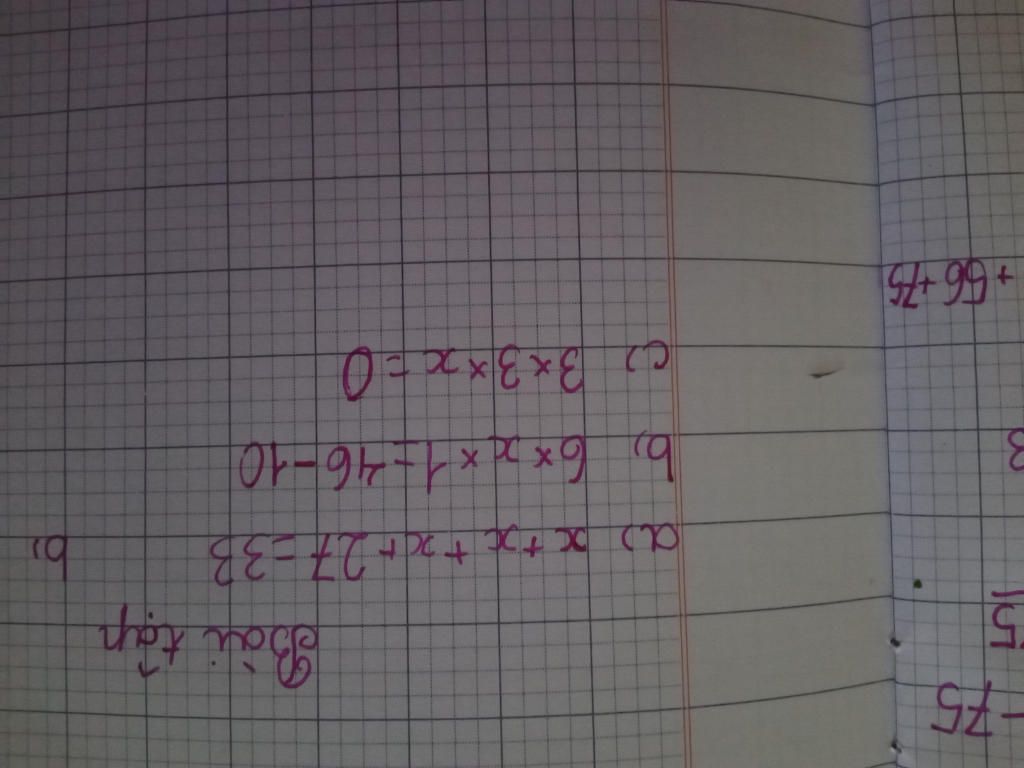 Bài tập
a) x + x + x + 27 = 33 b)
b) 6 × x × 1 = 46 - 10
c) 3 × 3 × x = 0
- 75
5
3
+ 56 + 75